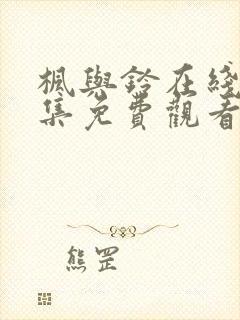 楓與鈴在綫
集免費觀看
熊罡